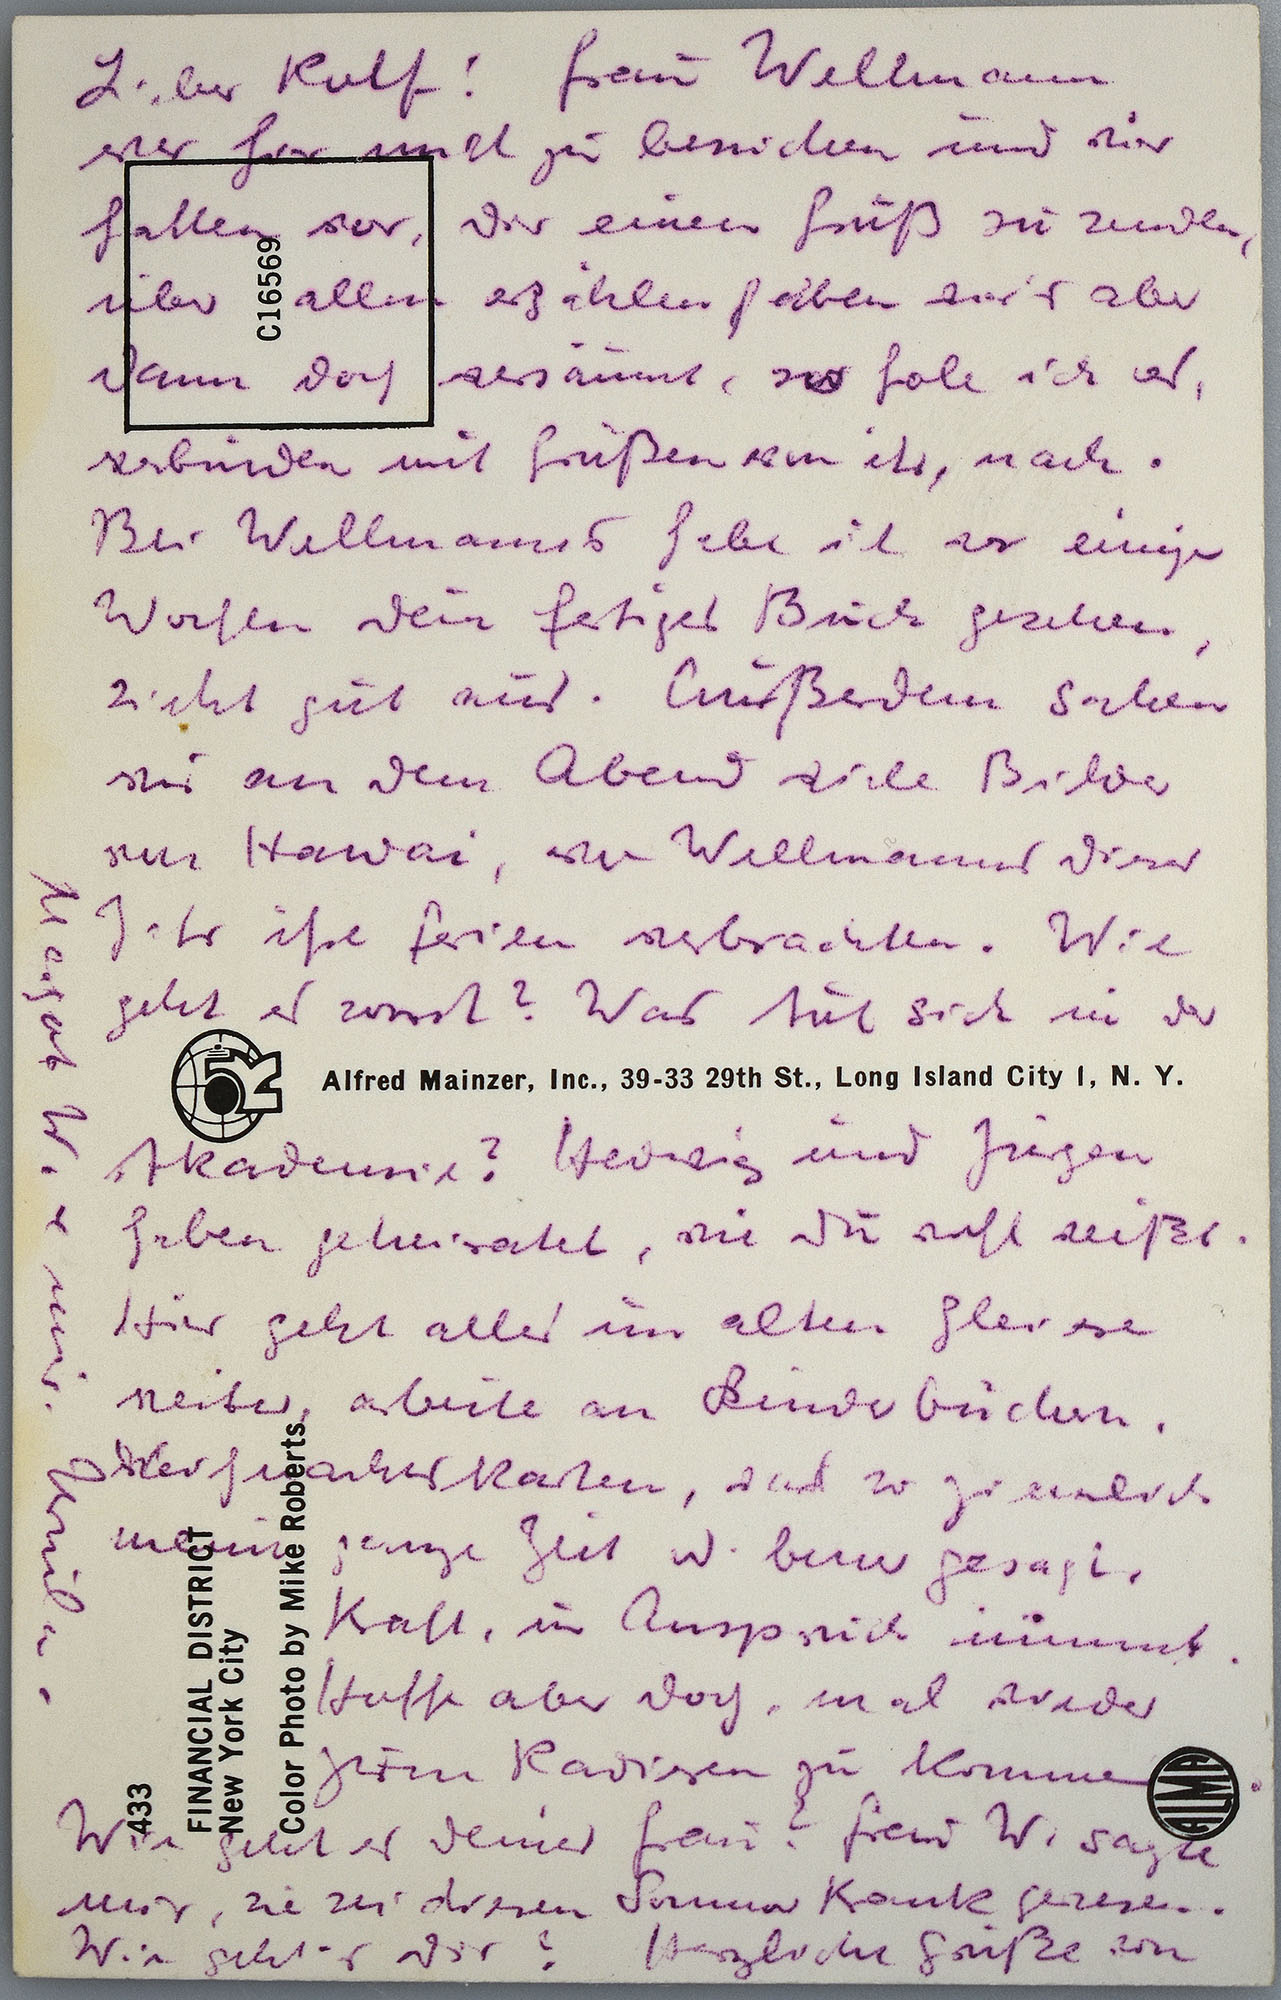 Lieber Rolf! Frau Wellmann
war hier mich zu besuchen und wir
hatten vor, dir einen Gruß zu senden,
über allem erzählen haben wir's aber
dann doch versäumt, so hole ich es,
verbunden mit Grüßen von ihr, nach.
Bei Wellmanns habe ich vor einigen
Wochen dein fertiges Buch gesehen,
sieht gut aus. Außerdem sahen
wir an dem Abend viele Bilder
von Hawai, wo Wellmanns dieses
Jahr ihre Ferien verbrachten. Wie
geht es sonst? Was tut sich in der
Alfred Mainzer, Inc., 39-33 29th St., Long Island City 1, N. Y.
Akademie? Hedwig und Jürgen
haben geheiratet, wie du wohl weißt.
Hier geht alles im alten Gleise
weiter, arbeite an Kinderbüchern,
karten, was so ziemlich
meine ganze Zeit u. besser gesagt,
Kraft, in Anspruch nimmt.
Hoffe aber doch, mal wieder
zum Radieren zu kommen.
Wie geht es deiner Frau? Frau W. sagte
mir, sie sei diesen Sommer krank gewesen.
Wie geht's dir? Herzliche Grüße von
C16569
433
FINANCIAL DISTRICT
New York City
Color Photo by Mike Roberts
ALMA